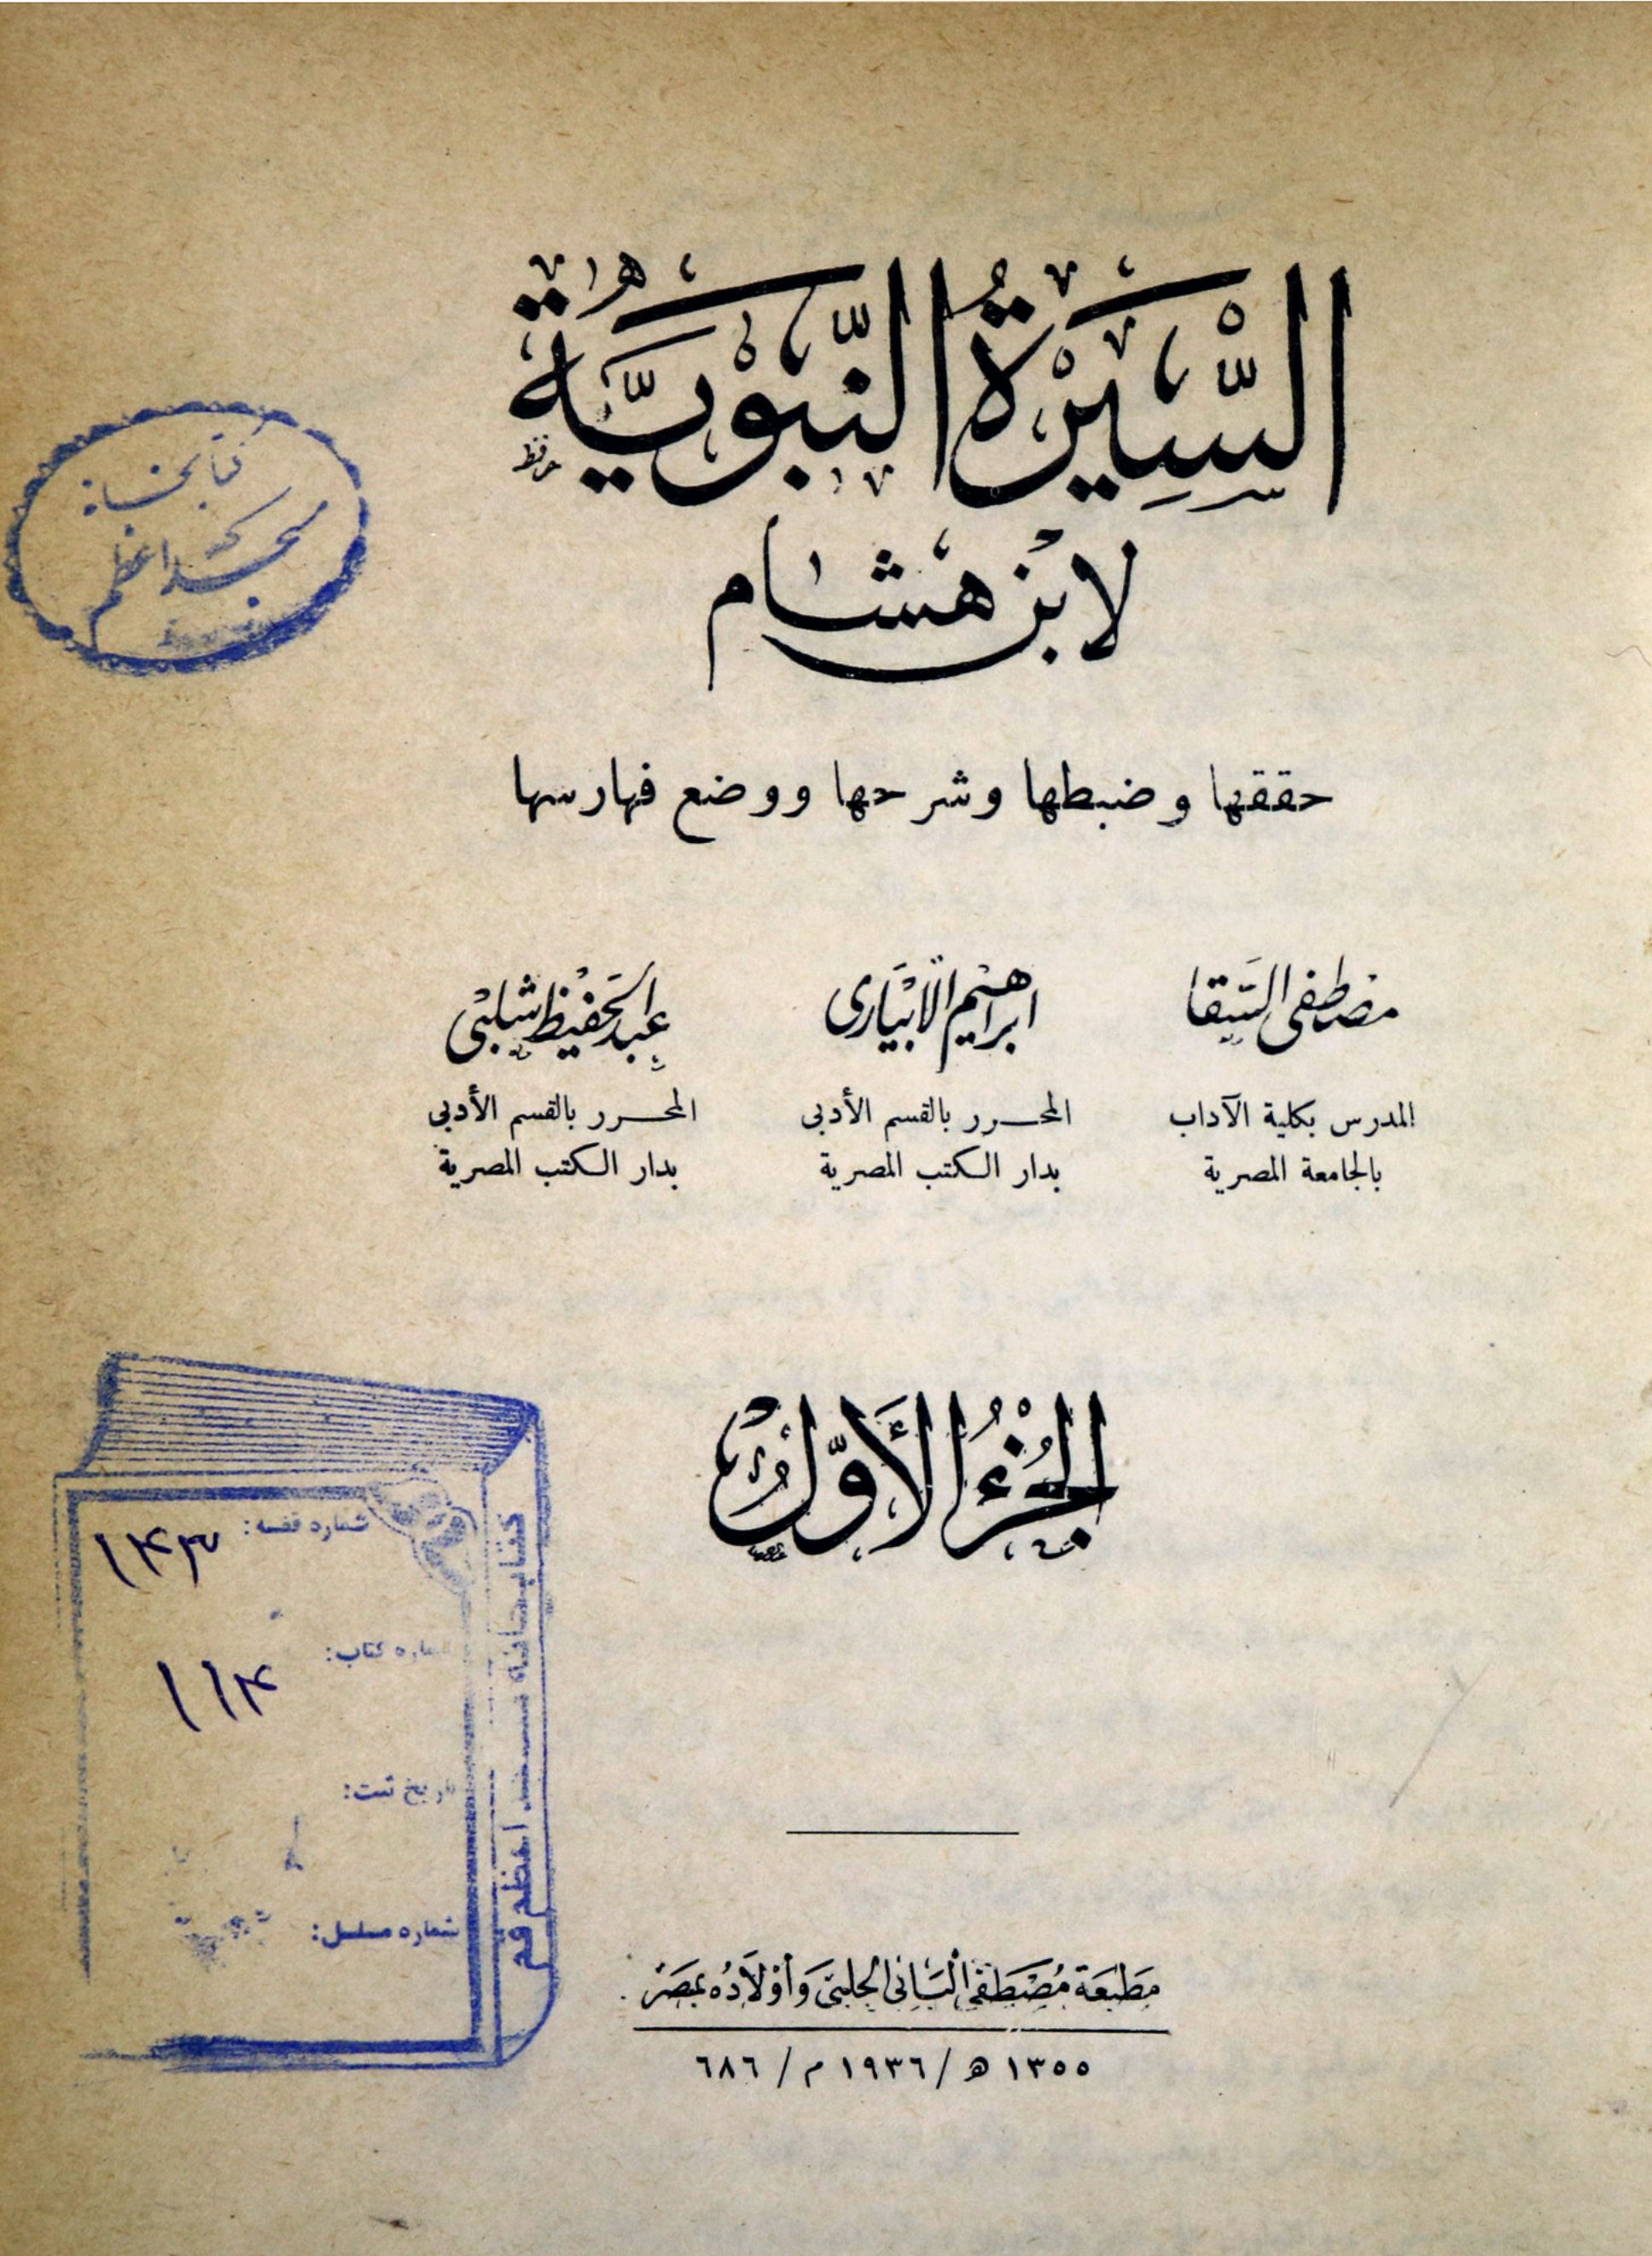 السِّيرَةُ النَّبَوِيَّةُ
لابن هشام
حققها وضبطها وشرحها ووضع فهارسها
مصطفى السقا
ابراهيم الأبيارى
عبد الحفيظ شلبى
المدرس بكلية الآداب
بالجامعة المصرية
المحرر بالقسم الأدبى
بدار الكتب المصرية
المحرر بالقسم الأدبى
بدار الكتب المصرية
الجُزْءُ الأَوَّلُ
مطبعة مصطفى البابى الحلبى وأولاده بمصر
١٣٥٥ ه / ١٩٣٦ م / ٦٨٦
كتابخانه
مسجد اعظم
شماره قفسه: ١٤٣
شماره كتاب: ١١٤
تاريخ ثبت:
شماره مسلسل:
كتابخانه مسجد اعظم قم